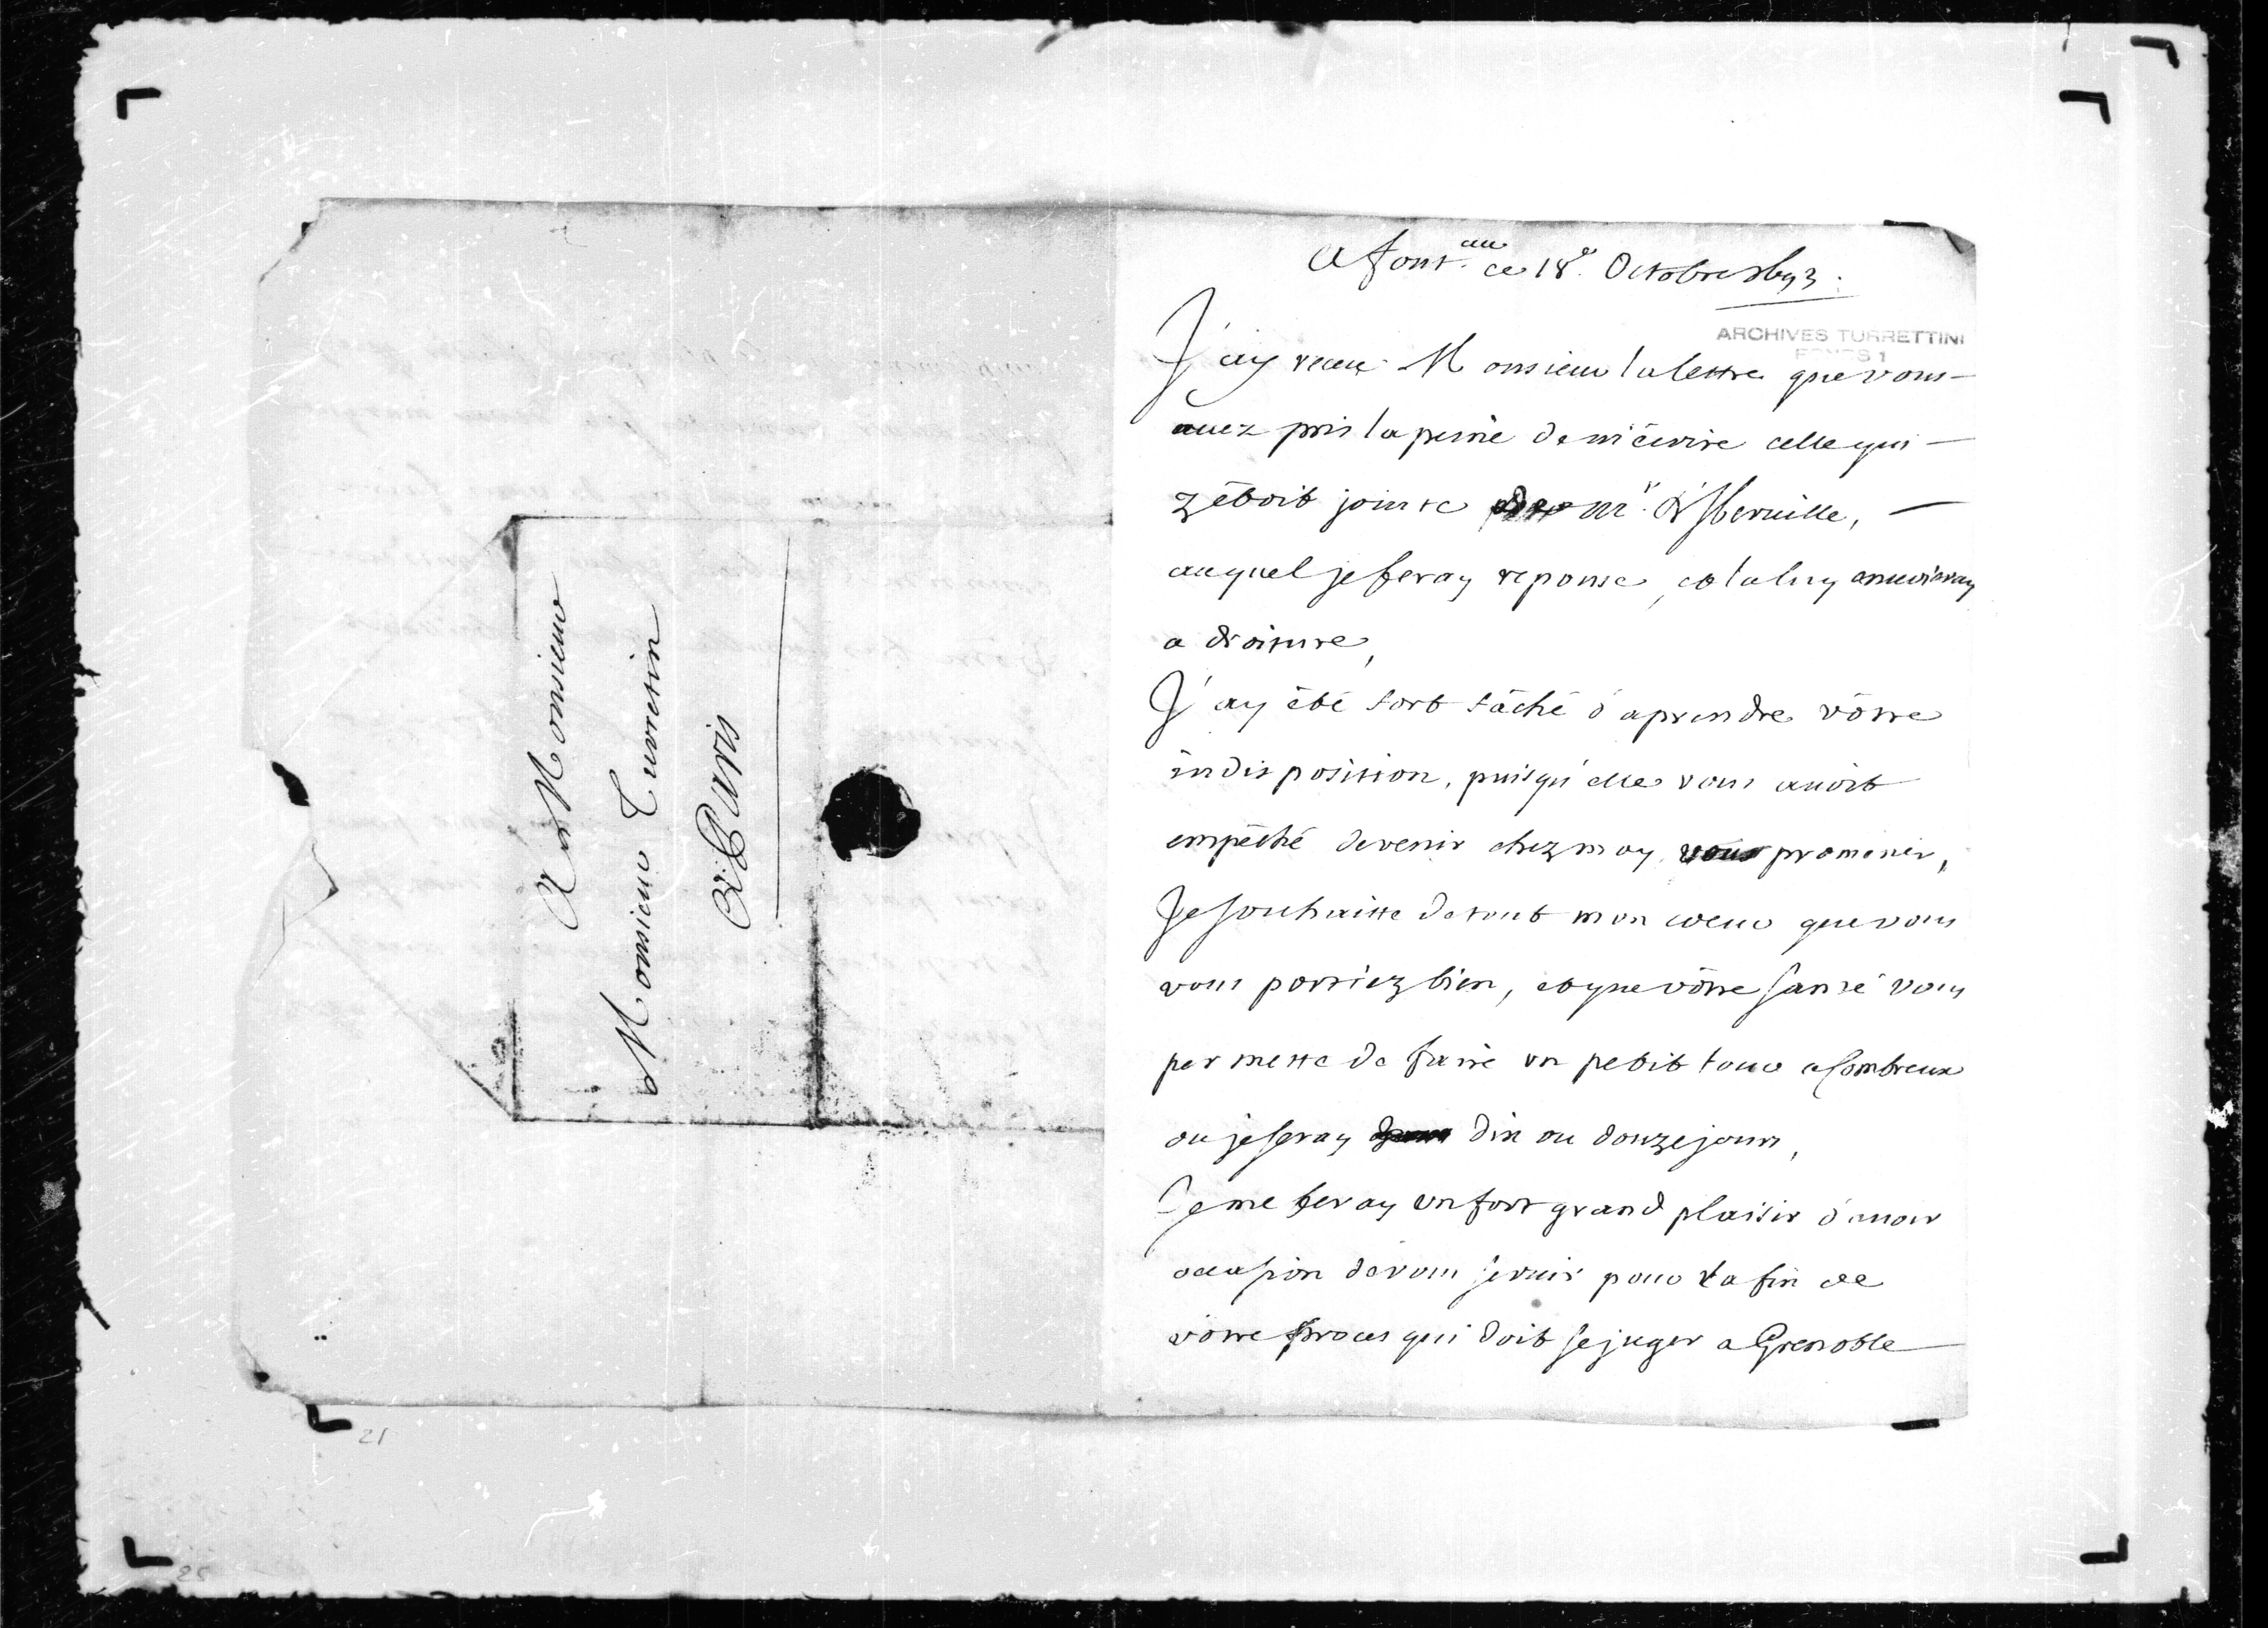 A Monsieur
Monsieur Turretin
A Paris
A font.au ce 18e. Octobre
ARCHIVES TURRETTINI
FONDS 1
J'ay receu Monsieur la lettre que vous
auez pris la peine de m'écrire celle qui
y étoit jointe de Mr. d'Iberuille,
auquel je feray reponse, et la luy enuoieray
a droiture,
J'ay été fort fâché d'aprendre vôtre
indisposition, puisqu'elle vous auoit
empêché de venir chez moy vous promener,
Je souhaitte de tout mon coeur que vous
vous portiez bien, et que vôtre santé vous
permette de faire un petit tour a Sombreux
ou je seray dix ou douze jours,
Je me feray un fort grand plaisir d'auoir
occasion de vous seruir pour la fin de
vôtre proces qui doit se juger a Grenoble
21
25